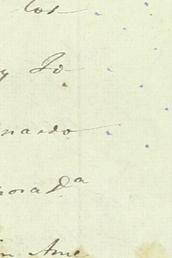 los
y Jo
nardo
nora Da
in Ame